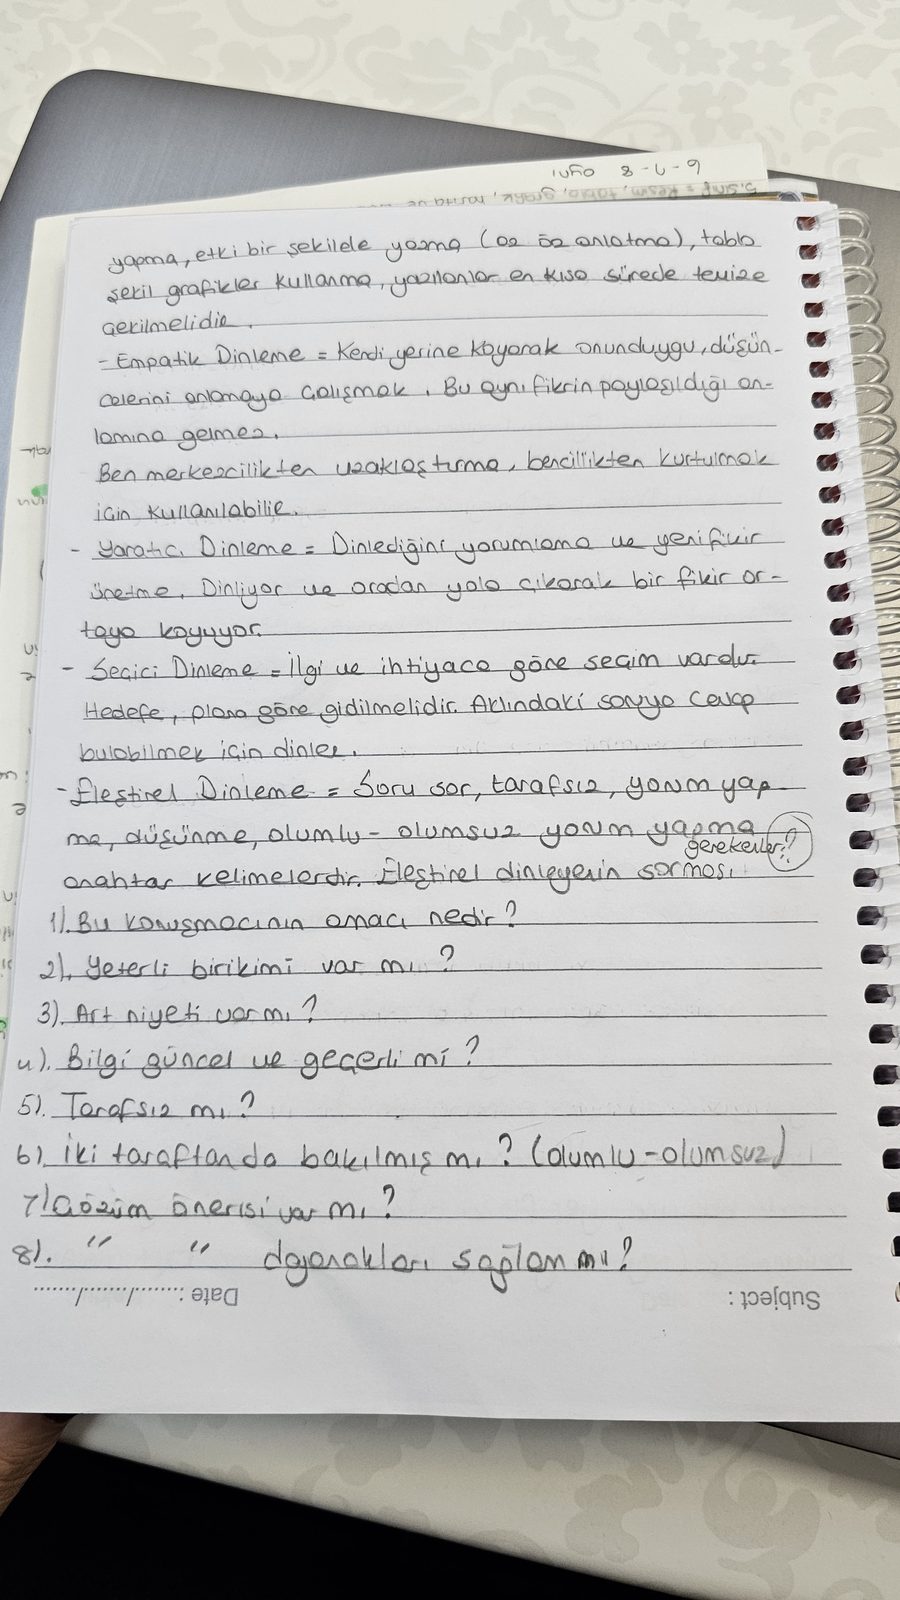 6-7-8 aynı
5.sınıf = Resim, tablo, grafik,
yapma, etki bir şekilele yazma (az öz anlatma), tablo
şekil grafikler kullanma, yazılanlar en kısa sürede temize
çekilmelidir.
- Empatik Dinleme = Kendi yerine koyarak onunduygu, düşün-
celerini anlamaya çalışmak. Bu aynı fikrin paylaşıldığı an-
lamına gelmez.
Ben merkezcilikten uzaklaştırma, bencillikten kurtulmak
için kullanılabilir.
- Yaratıcı Dinleme = Dinlediğini yorumlama ve yeni fikir
üretme. Dinliyor ve oradan yola çıkarak bir fikir or-
taya koyuyor.
- Seçici Dinleme = İlgi ve ihtiyaca göre seçim vardır.
Hedefe, plana göre gidilmelidir. Aklındaki soruya cevap
bulabilmek için dinler.
- Eleştirel Dinleme = Soru sor, tarafsız, yorum yap-
ma, düşünme, olumlu - olumsuz yorum yapma
anahtar kelimelerdir. Eleştirel dinleyenin sorması gerekenler:?
1). Bu konuşmacının amacı nedir?
2). Yeterli birikimi var mı?
3). Art niyeti var mı?
4). Bilgi güncel ve geçerli mi?
5). Tarafsız mı?
6). İki taraftanda bakılmış mı? (olumlu - olumsuz)
7) Çözüm önerisi var mı?
8). " " dayanakları sağlam mı?
Subject :
Date : ......../......../........